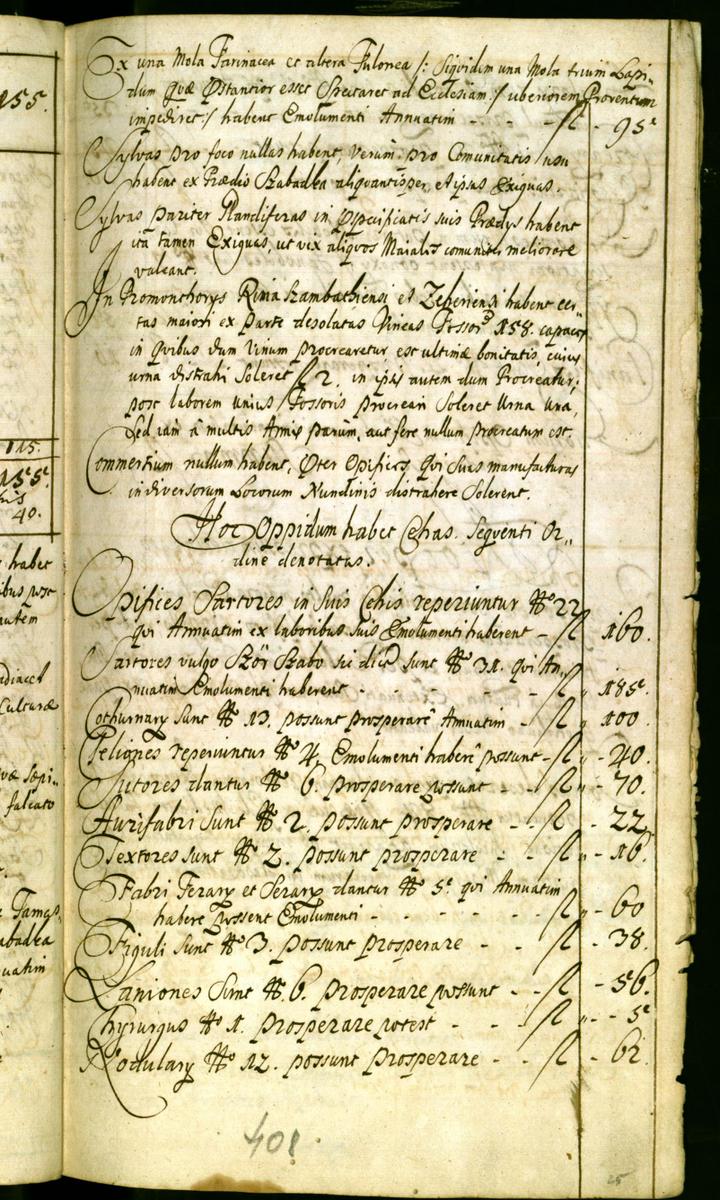 155.
115.
155.
40.
habet
autem
Culturæ
falcato
Ex una Mola Farinacea et altera Fulonea /: Siqvidem una Mola trium Lapi-
dum quæ Præstantior esset Spectaret ad Ecclesiam :/ uberiorem Proventum
impediret :/ habent Emolumenti Annuatim - - - fl - 95
Sylvas pro foco nullas habent, verum pro Comunitatis usu
habent ex Prædio Szabadka aliquantisper, et ipsas Exiguas.
Sylvas pariter Glandiferas in Specificatis suis Prædys habent
ita tamen Exiguas, ut vix aliquos Maiales comuniter meliorare
valeant.
In Promonthorys Rima Szombathiensi et Zeheriensi habent cer-
tas maiori ex Parte desolatas Vineas Fossor 158. capaces
in quibus dum Vinum Procrearetur est ultimæ bonitatis, cuius
urna distrahi Soleret fl 2. in ipsis autem dum Procreatur,
post laborem unius Fossoris procreari Soleret Urna una,
Sed iam à multis Annis parum, aut fere nullum procreatum est.
Commertium nullum habent, Præter Opifices qui suas manufacturas
in diversorum Locorum Nundinis distrahere Solerent.
Hoc Oppidum habet Cehas Sequenti Or-
dine denotatas.
Opifices Sartores in suis Cehis reperiuntur No 22
qui Annuatim ex laboribus suis Emolumenti haberent - fl 160.
Sartores vulgo Szőr Szabo sic dicti sunt No 31. qui An-
nuatim Emolumenti haberent - - - - - fl " 185.
Cothurnary Sunt No 13. possunt prosperare Annuatim - fl " 100
Peliones reperiuntur No 4. Emolumenti habere possunt - fl " - 40.
Sutores dantur No 6. prosperare possunt - - fl " - 70.
Aurifabri Sunt No 2. possunt prosperare - - fl - 22
Textores sunt No 2. possunt prosperare - - fl " - 16.
Fabri Ferary et Serary dantur No 5. qui Annuatim
habere possent Emolumenti - - - - - - fl " - 60
Figuli sunt No 3. possunt prosperare - - fl - 38.
Laniones Sunt No 6. prosperare possunt - - fl " - 56.
Chyrurgus No 1. prosperare potest - - - fl " - - 5
Rotulary No 12. possunt prosperare - - fl - 62.
401.